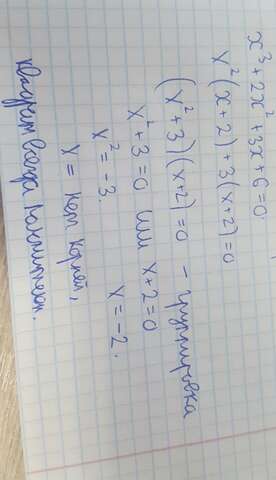 x³ + 2x² + 3x + 6 = 0
x² (x + 2) + 3 (x + 2) = 0
(x² + 3) (x + 2) = 0 - группировка
x² + 3 = 0 или x + 2 = 0
x² = -3. x = -2.
x = нет корней,
квадрат всегда положителен.